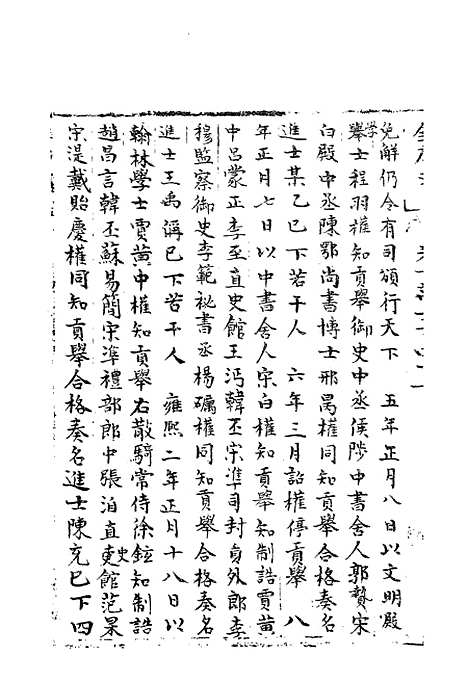 免解仍令有司頒行天下　五年正月八日以文明殿
學士程羽權知貢舉御史中丞侯陟中書舍人郭贄宋
白殿中丞陳鄂尚書博士邢昺權同知貢舉合格奏名
進士某乙已下若干人　六年三月詔權停貢舉　八
年正月七日以中書舍人宋白權知貢舉知制誥賈黃
中呂蒙正李至直史館王沔韓丕宋準司封員外郎李
穆監察御史李範祕書丞楊礪權同知貢舉合格奏名
進士王禹偁已下若干人　雍熙二年正月十八日以
翰林學士賈黃中權知貢舉右散騎常侍徐鉉知制誥
趙昌言韓丕蘇易簡宋準禮部郎中張洎直史館范杲
宗湜戴貽慶權同知貢舉合格奏名進士陳充已下四